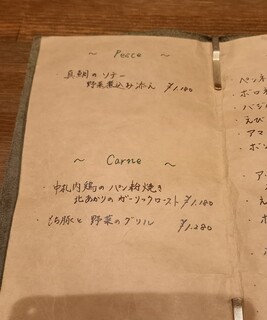 ~ Pesce ~
真鯛のソテー
野菜煮込みあん ¥1.180
~ Carne ~
・中札内鶏のパン粉焼き
北あかりのガーリックロースト ¥1.180
・もち豚と野菜のグリル ¥1.280
・ペンネ
・ボロネ
・バジ
・えび
・アマ
・ボン